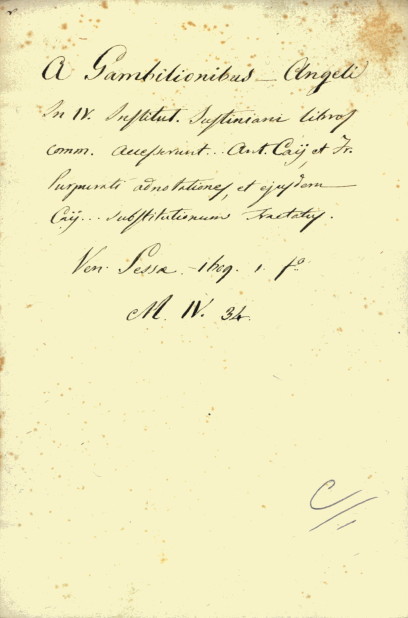 A Gambilionibus - Angeli
In IV. Institut. Justiniani libros
comm. accesserunt... Ant. Caij et Fr.
Purpurati adnotationes, et ejusdem
Caij... substitutionum tractatus.
Ven. Sessa - 1609. 1. fo.
M. IV. 34.